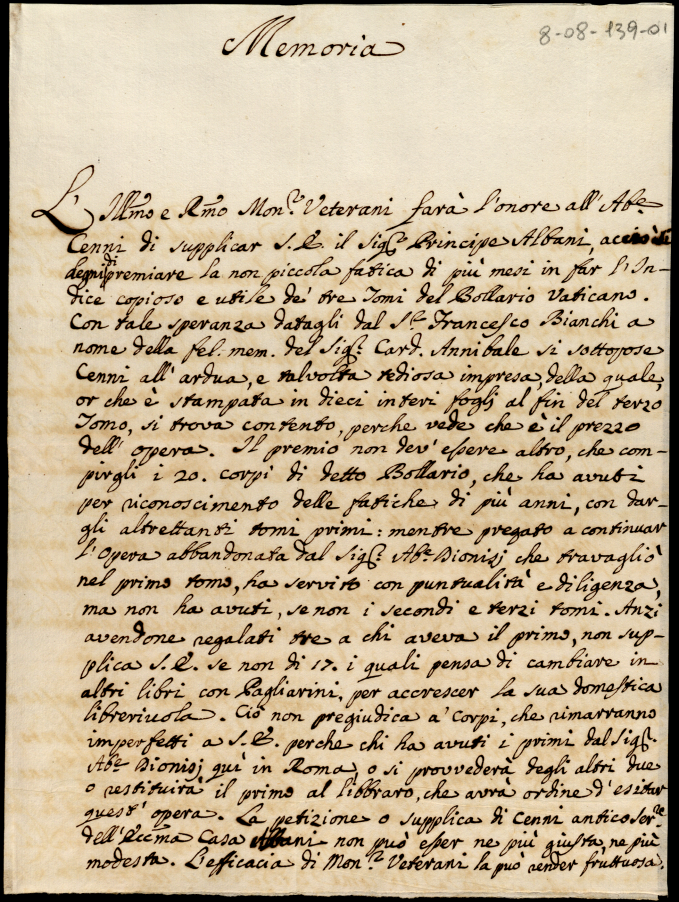 8-08-139-01
Memoria
L'Illmo e Rmo Mon.r Veterani farà l'onore all'Ab.e
Cenni di supplicar S. E. il Sig.r Principe Albani, acciò si
degni di premiare la non piccola fatica di più mesi in far l'In-
dice copioso e utile de' tre Tomi del Bollario Vaticano.
Con tale speranza datagli dal S.r Francesco Bianchi a
nome della fel. mem. del Sig.r Card. Annibale si sottopose
Cenni all'ardua, e talvolta tediosa impresa, della quale,
or che è stampata in dieci interi foglj al fin del terzo
Tomo, si trova contento, perche vede che è il prezzo
dell'opera. Il premio non dev'essere altro, che com-
pirgli i 20. corpi di detto Bollario, che ha avuti
per riconoscimento delle fatiche di più anni, con dar-
gli altrettanti tomi primi: mentre pregato a continuar
l'Opera abbandonata dal Sig.r Ab.e Dionisj che travagliò
nel primo tomo, ha servito con puntualità e diligenza,
ma non ha avuti, se non i secondi e terzi tomi. Anzi
avendone regalati tre a chi aveva il primo, non sup-
plica S. E. se non di 17. i quali pensa di cambiare in
altri libri con Pagliarini, per accrescer la sua domestica
libreriuola. Ciò non pregiudica a' corpi, che rimarranno
imperfetti a S. E. perche chi ha avuti i primi dal Sig.r
Ab.e Dionisj quì in Roma, o si provvederà degli altri due
o restituirà il primo al libbraro, che avrà ordine d'esitar
quest'opera. La petizione o supplica di Cenni antico Ser.re
dell'Eccma Casa Albani non può esser ne più giusta, ne più
modesta. L'efficacia di Mon.r Veterani la può render fruttuosa.